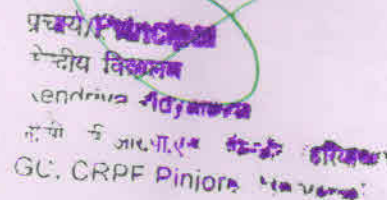 प्राचार्य/Principal
केन्द्रीय विद्यालय
Kendriya Vidyalaya
हरियाणा
GC, CRPF Pinjore Haryana